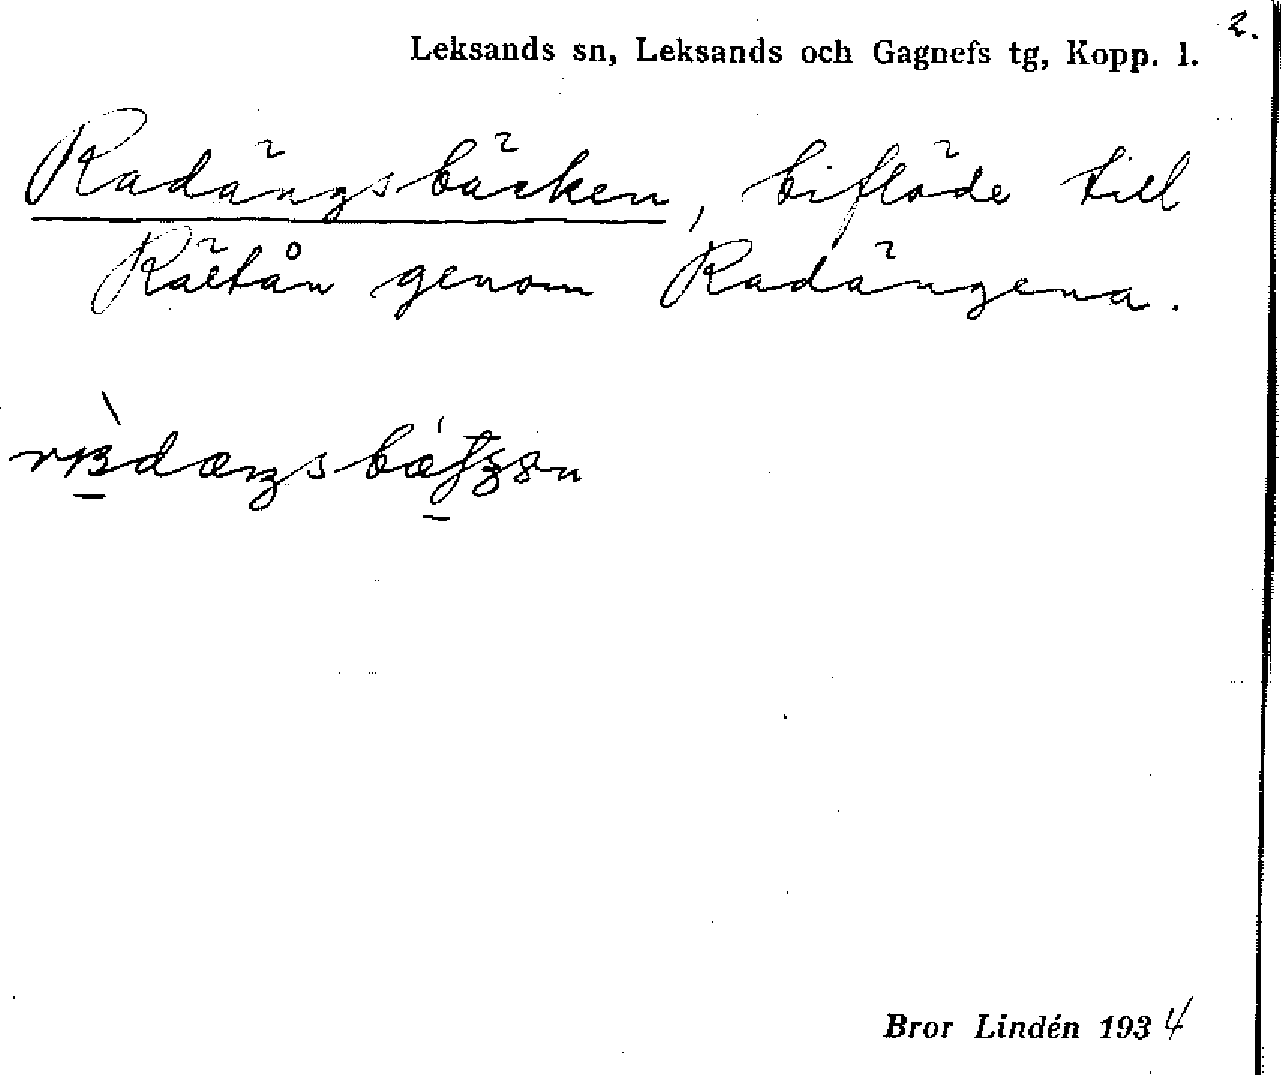 2.
Leksands sn, Leksands och Gagnefs tg, Kopp. l.
Radängsbäcken, biflöde till
genom Radängena.
Bror Lindén 1934